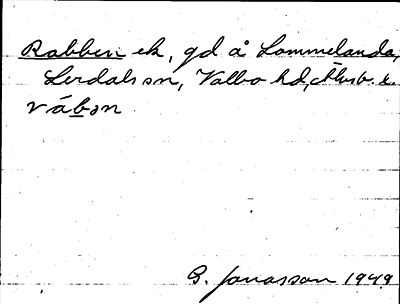 Rabben ek, gd å Lommelanda,
Lerdals sn, Valbo hd, Älvsb. l.
ráb̲ən
G. Jonasson 1949